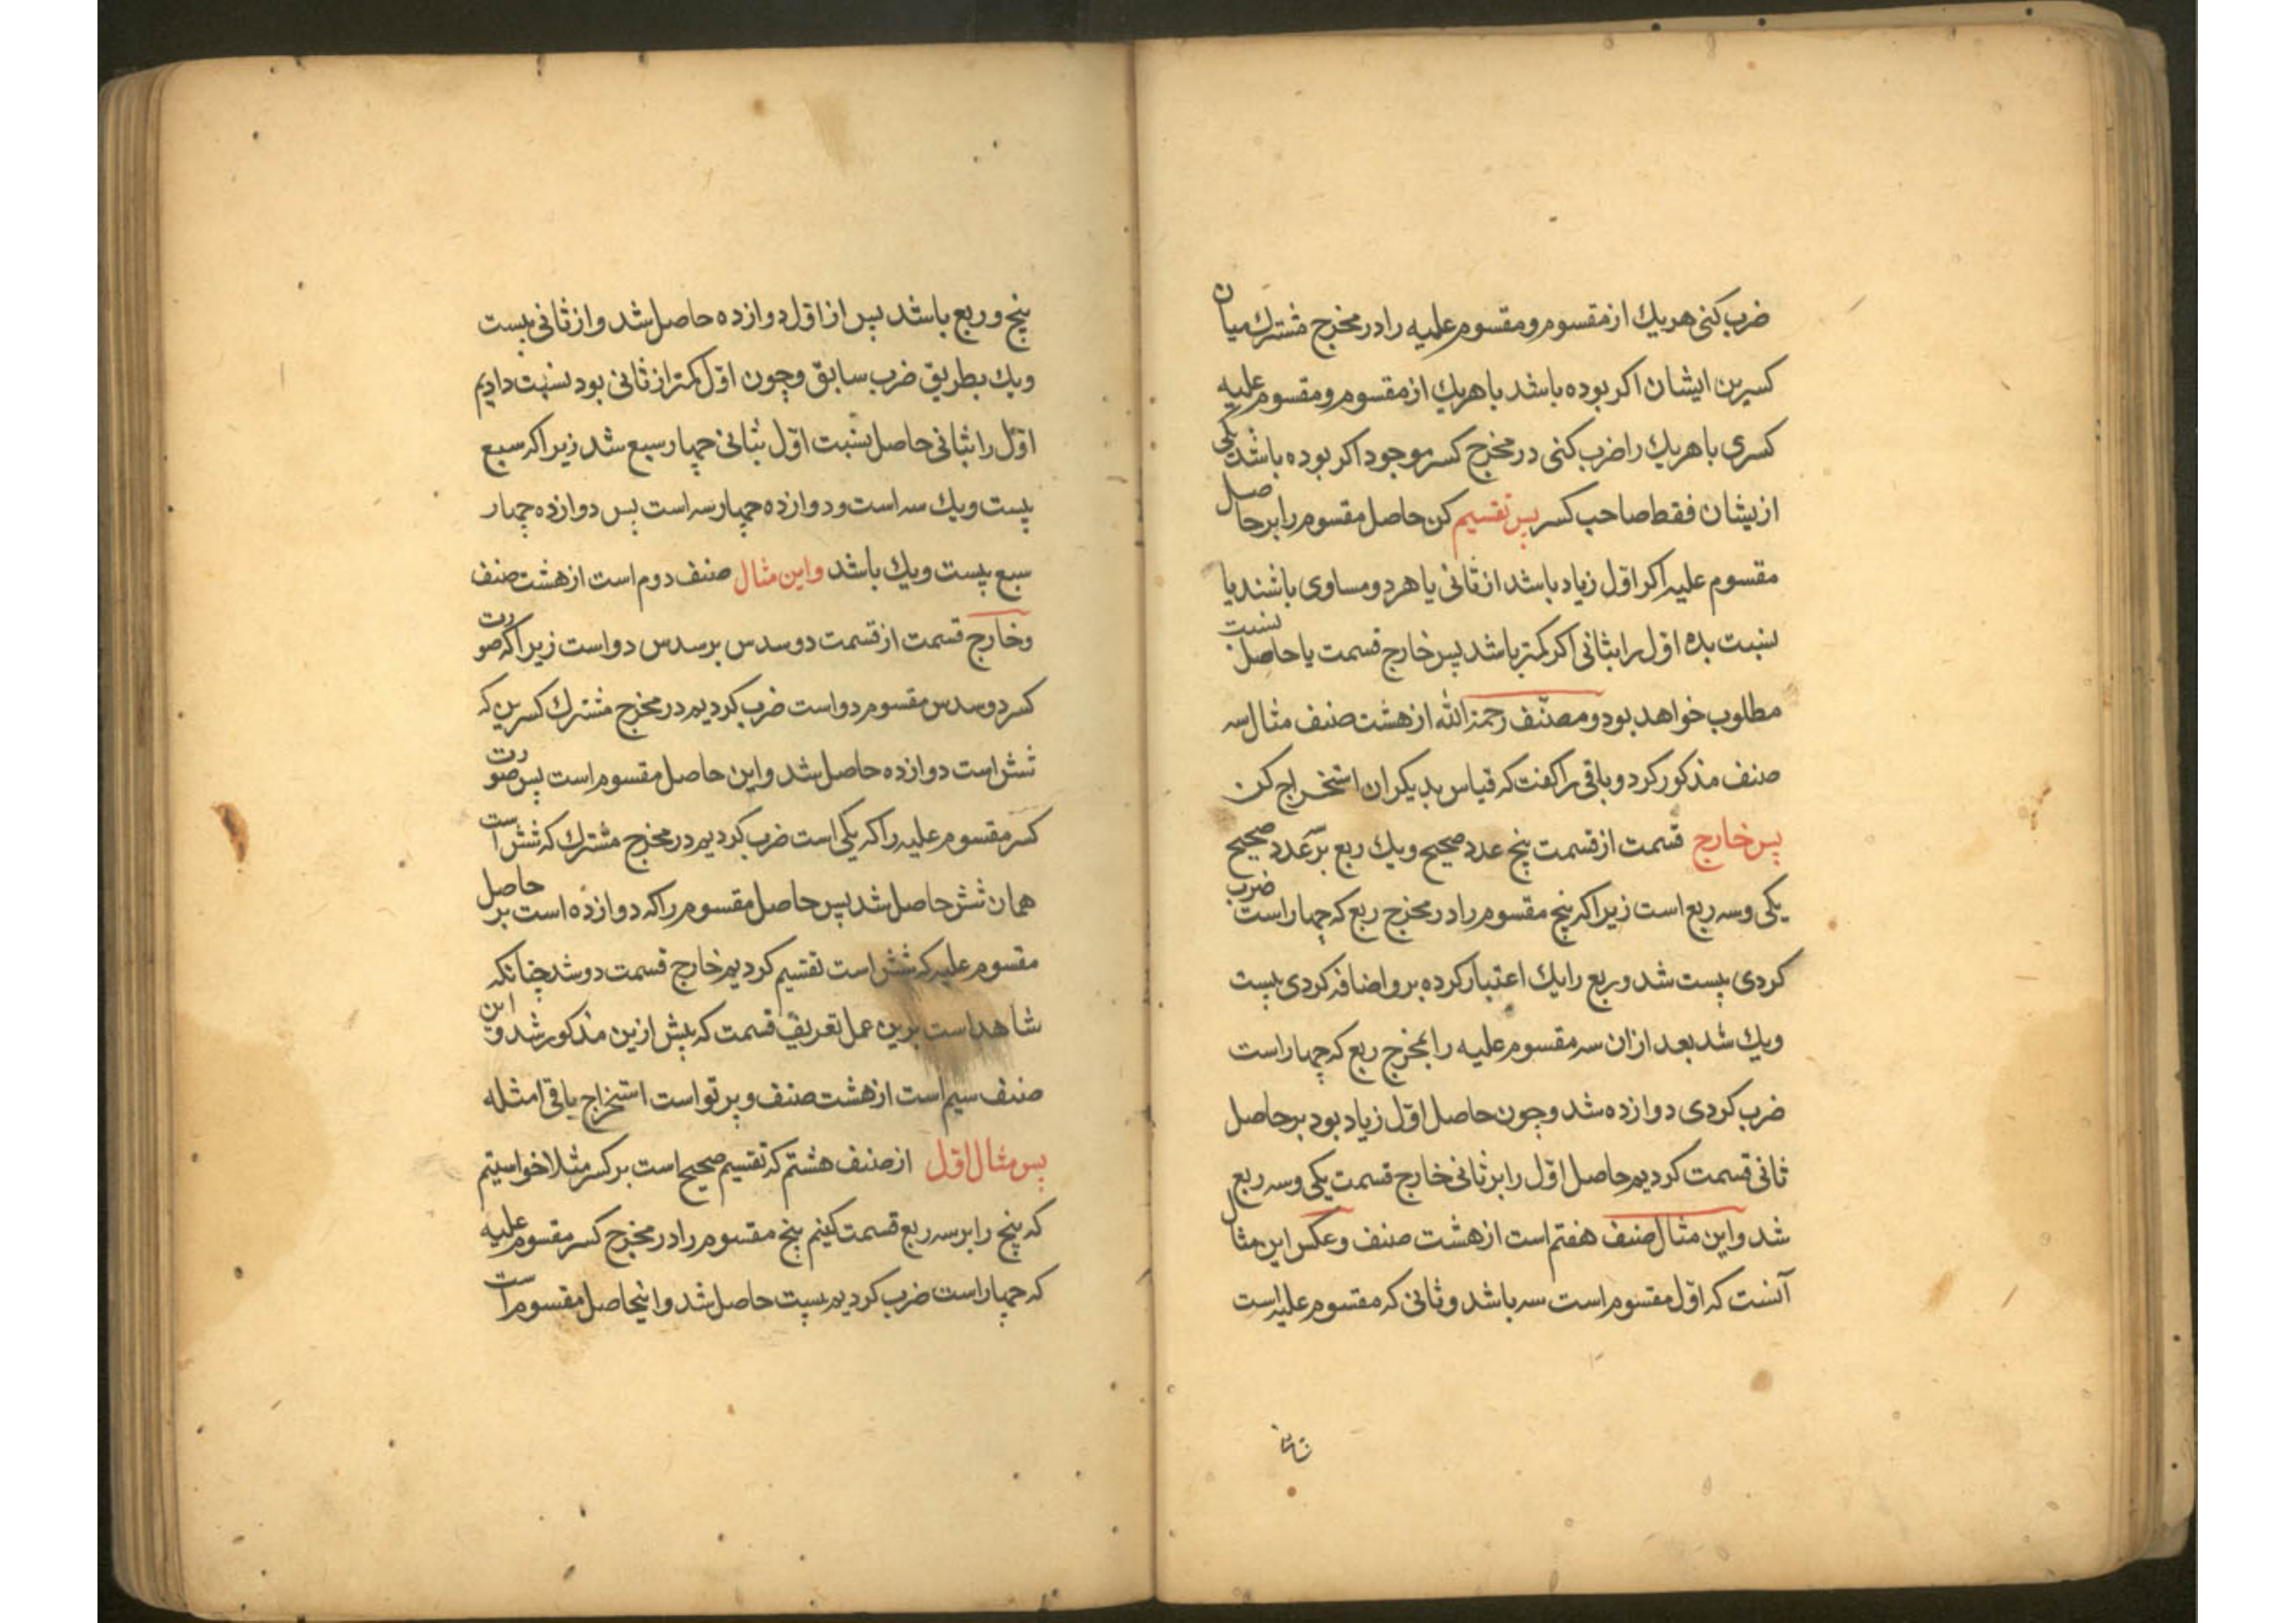 ضرب کنی هریك از مقسوم و مقسوم علیه را در مخرج مشترك میان
کسرین ایشان اکر بوده باشد با هریك از مقسوم و مقسوم علیه
کسری یا هریك را ضرب کنی در مخرج کسر موجود اکر بوده باشد یکی
ازیشان فقط صاحب کسر پس تقسیم کن حاصل مقسوم را بر حاصل
مقسوم علیه اکر اول زیاد باشد از ثانی یا هر دو مساوی باشند یا
نسبت بده اول را بثانی اکر کمتر باشد پس خارج قسمت یا حاصل نسبت
مطلوب خواهد بود و مصنّف رحمة الله از هشت صنف مثال سه
صنف مذکور کرد و باقی را کفت که قیاس بدیکران استخراج کن
پس خارج قسمت از قسمت پنج عدد صحیح ویك ربع بر عدد صحیح
یکی وسه ربع است زیرا که پنج مقسوم را در مخرج ربع که چهار است ضرب
کردی بیست شد و ربع را یك اعتبار کرده برو اضافه کردی بیست
ویك شد بعد ازان سه مقسوم علیه را بمخرج ربع که چهار است
ضرب کردی دوازده شد وچون حاصل اول زیاد بود بر حاصل
ثانی قسمت کردیم حاصل اول را بر ثانی خارج قسمت یکی وسه ربع
شد واین مثال صنف هفتم است از هشت صنف وعکس این مثال
آنست که اول مقسوم است سه باشد وثانی که مقسوم علیه است
پنج و ربع باشد پس از اول دوازده حاصل شد و از ثانی بیست
ویك بطریق ضرب سابق وچون اول کمتر از ثانی بود نسبت دادیم
اول را بثانی حاصل نسبت اول بثانی چهار سبع شد زیرا که سبع
بیست ویك سه است ودوازده چهار سه است پس دوازده چهار
سبع بیست ویك باشد واین مثال صنف دوم است از هشت صنف
وخارج قسمت از قسمت دو سدس بر سدس دو است زیرا که صورت
کسر دو سدس مقسوم دو است ضرب کردیم در مخرج مشترك کسرین که
شش است دوازده حاصل شد واین حاصل مقسوم است پس صورت
کسر مقسوم علیه را که یکی است ضرب کردیم در مخرج مشترك که شش است
همان شش حاصل شد پس حاصل مقسوم را که دوازده است بر حاصل
مقسوم علیه که شش است تقسیم کردیم خارج قسمت دو شد چنانکه
شاهد است برین عمل تعریف قسمت که پیش ازین مذکور شد و این
صنف سیم است از هشت صنف و بر تو است استخراج باقی امثله
پس مثال اول از صنف هشتم که تقسیم صحیح است بر کسر مثلا خواستیم
که پنج را بر سه ربع قسمت کنیم پنج مقسوم را در مخرج کسر مقسوم علیه
که چهار است ضرب کردیم بیست حاصل شد و اینحاصل مقسوم است